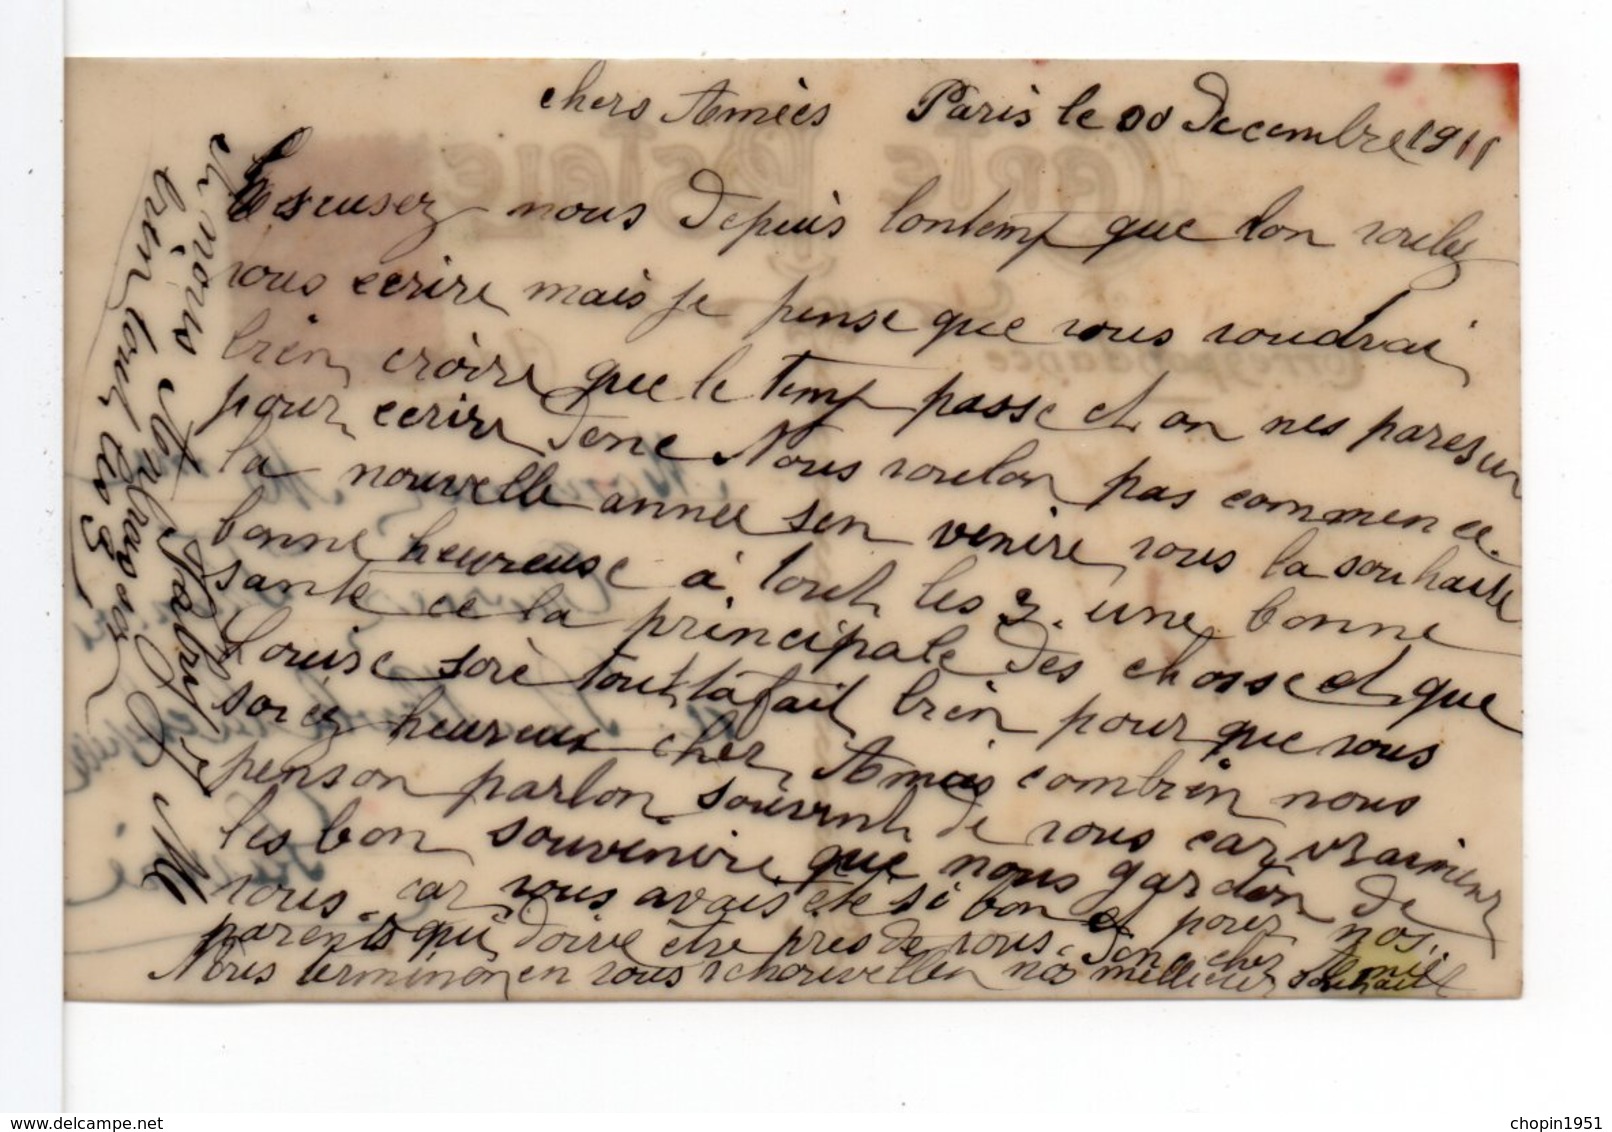 chers Amiés Paris le 30 Decembre 1911
Escusez nous Depuis lontemp que lon voulez
vous ecrire mais je pense que vous voudrai
bien croire que le temp passe et on nes pareseu
pour ecrire Donc Nous voulon pas commence
la nouvelle année sen venire vous la souhaite
bonne heureuse à tout les 3. une bonne
sante ce la principale des chosse et que
Louise soie touttafait bien pour que vous
soiez heureux cher Amies combien nous
penson parlon souvent de vous car vraiment
les bon souvenire que nous gardon de
vous. car vous avais ete si bon et pour nos
parents qui doive etre pres de vous. Donc cher Amie
Nous terminon en vous renouvellen nos meilleur souhait
et nous vous embrasson
bien tout les 3
Gabriel M
CARTE POSTALE
Correspondance
www.delcampe.net
chopin1951